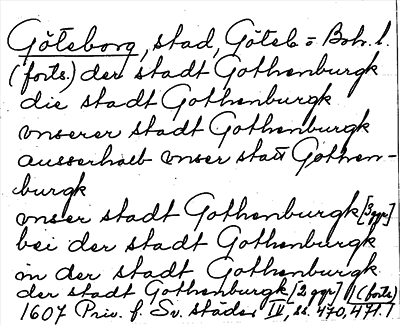 Göteborg, stad, Göteb = Boh. l.
(forts.) der stadt Gothenburgk
die stadt Gothenburgk
vnserer stadt Gothenburgk
ausserhalb vnser statt Gothen-
burgk
vnser stadt Gothenburgk [3 ggr]
bei der stadt Gothenburgk
in der stadt Gothenburgk
der stadt Gothenburgk [2 ggr] (forts)
1607 Priv. f. Sv. städer IV, ss. 470, 471.